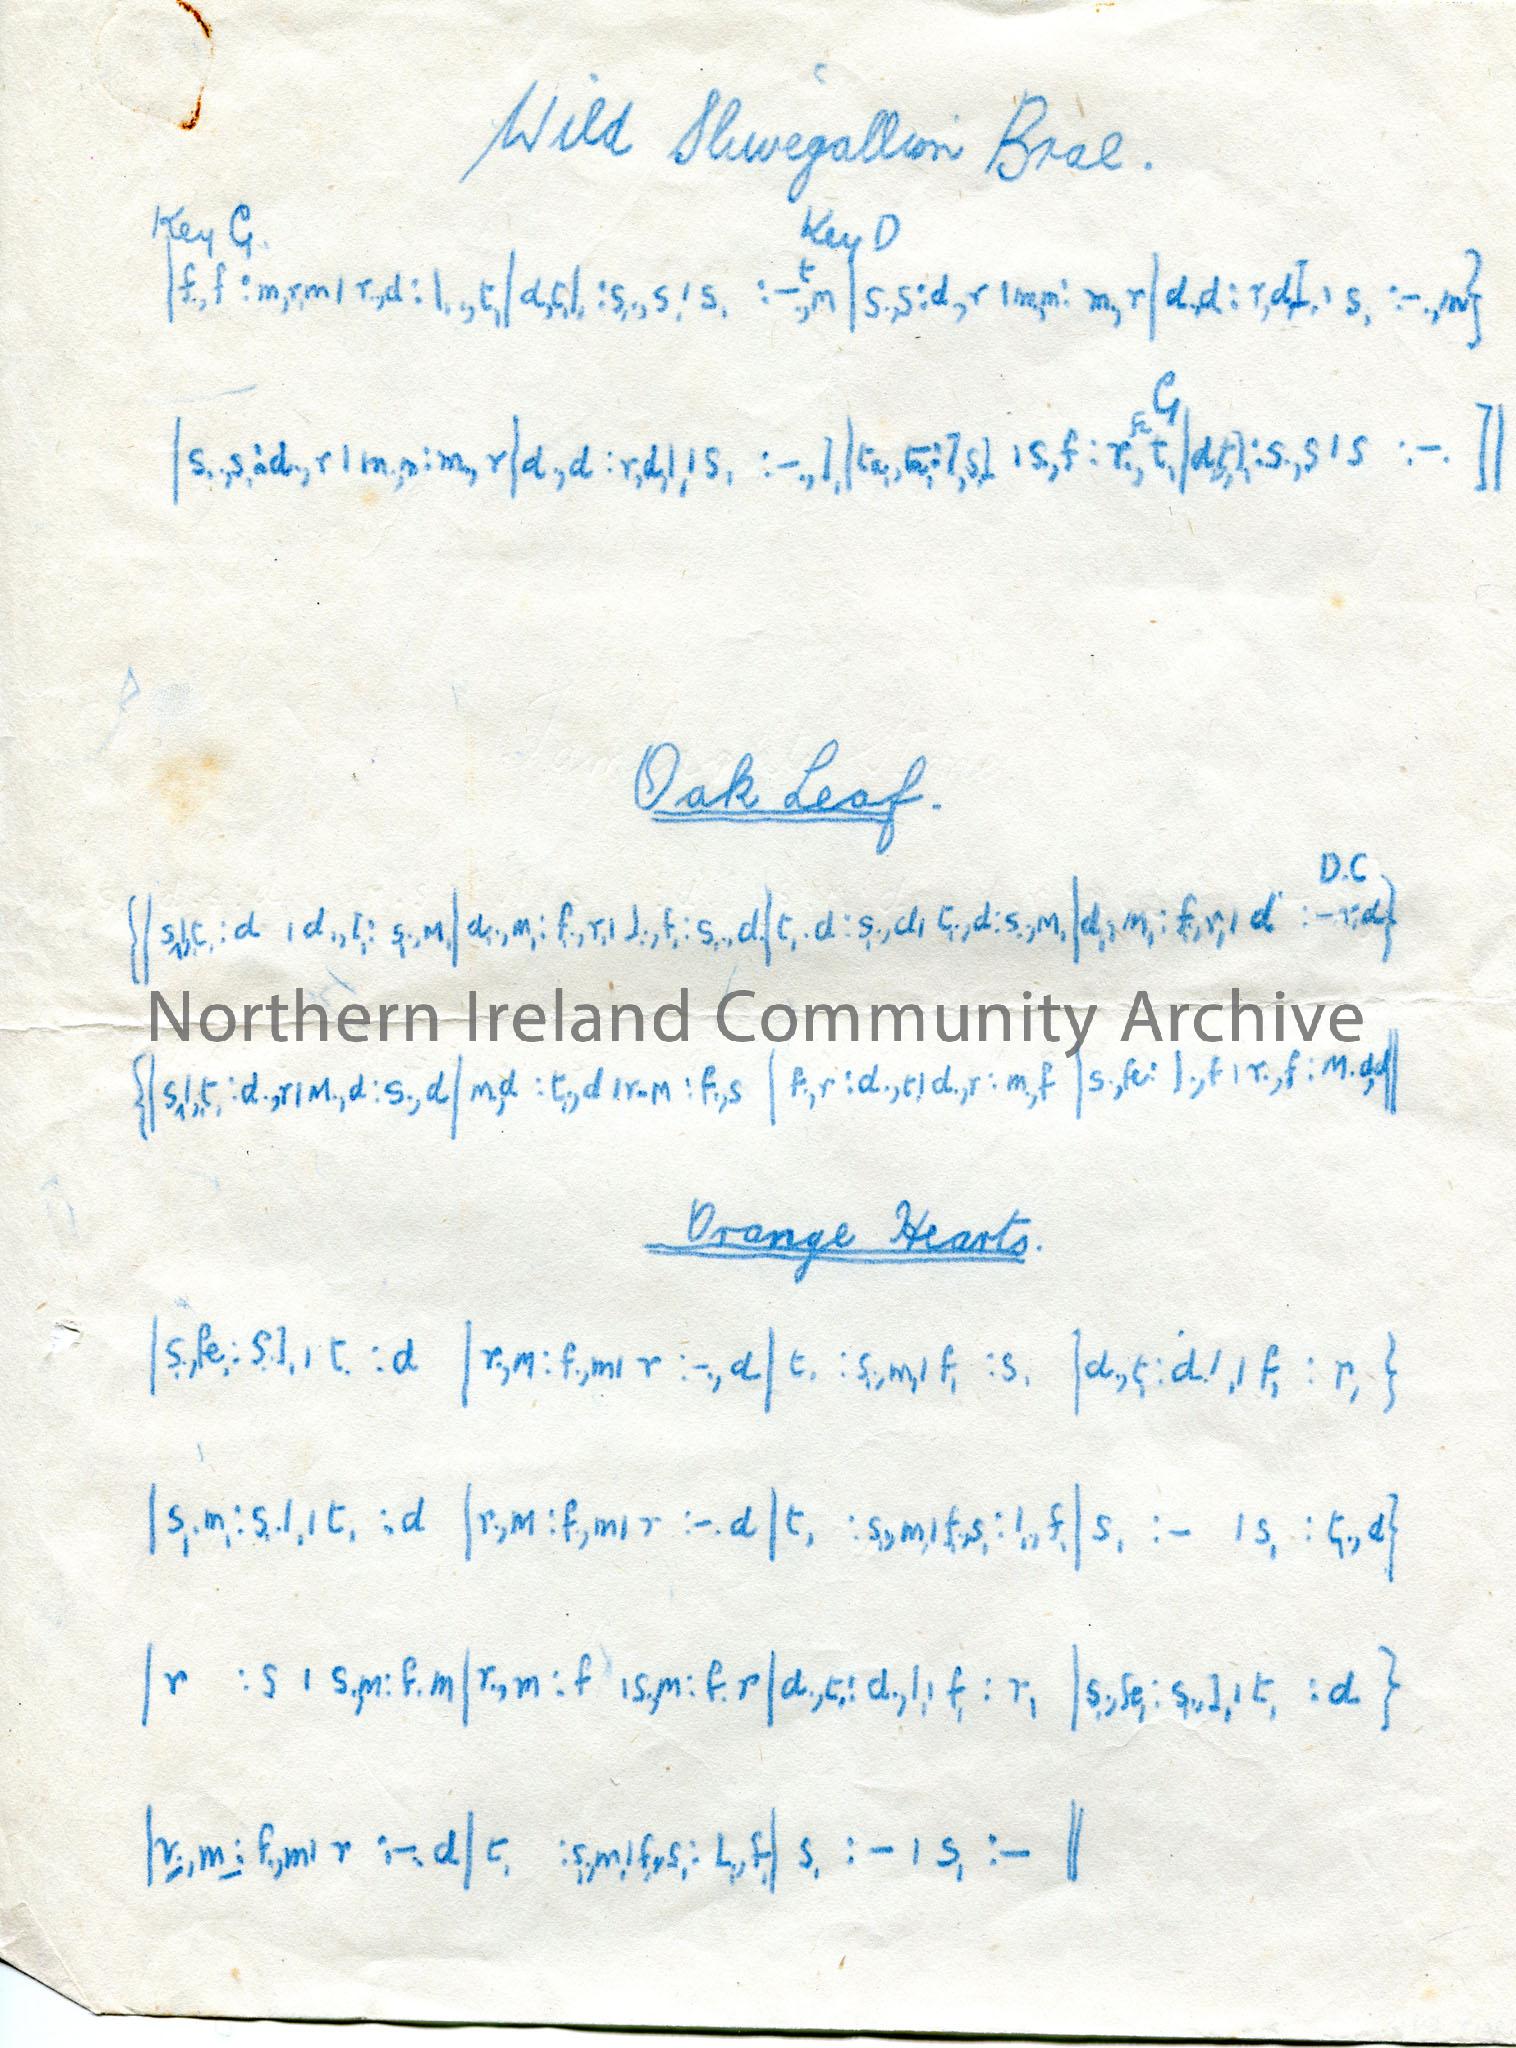 Wild Sluvegallion Brae.
Key G. Key D
|f.,f :m,r,m| r.,d:l,.,t,|d,t,l, :s,.,s,| s, :-.,m|s.,s:d.,r |m,m: m,r|d.,d: r,d,l, | s, :-.,m}
G
|s,.,s,:d.,r|m.,m:m.,r|d.,d :r,d,l,|s, :-.,l,|ta,.,ta,:l,,s, |s,f : r.,t,|d,t,l,:s.,s|s :-. ]||
Oak Leaf.
D.C
{||s,l,t, :d |d.,l,: s,.,m,|d,.,m,: f,.,r,|l,.,f,:s,.,d|t,.d:s,.,d|t,.,d:s,.,m,|d,.,m,: f,.,r,|d :-r,d}
Northern Ireland Community Archive
{||s,l,t, :d.,r|m.,d:s.,d|m.d :t,.,d|r.m :f.,s |f.,r :d.,t,|d.,r:m.,f |s.,fe: l.,f|r.,f:m.d,d||
Orange Hearts.
|s,.,fe,:s,.l,|t, :d |r.,m:f.,m|r :-.,d|t, :s,.,m,|f, :s, |d.,t,:d.l,|f, : r, }
|s,.m,:s,.l,|t, :d |r.,m:f.,m|r :-.d|t, :s,.,m,|f,.,s,:l,.,f,|s, :- |s, : t,.,d}
|r :s | s.m:f.m|r.,m:f |s.m:f.r|d.,t,:d.,l,|f, : r, |s,.,fe,:s,.,l,|t, :d }
|r.,m: f.,m| r :-.d|t, :s,.,m,|f,.,s,: l,.,f,| s, :-| s, :- ||